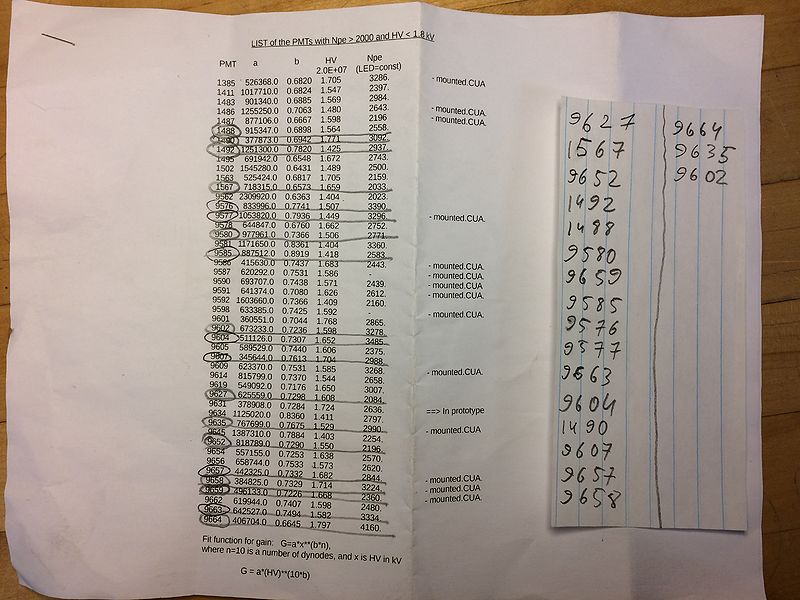 LIST of the PMTs with Npe > 2000 and HV < 1.8 kV
PMT a b HV Npe
2.0E+07 (LED=const)
1385 526368.0 0.6820 1.705 3286. - mounted.CUA
1411 1017710.0 0.6824 1.547 2397.
1483 901340.0 0.6885 1.569 2984.
1486 1255250.0 0.7063 1.480 2643. - mounted.CUA.
1487 877106.0 0.6667 1.598 2196 - mounted.CUA.
1488 915347.0 0.6898 1.564 2558.
1490 377873.0 0.6942 1.771 3092.
1492 1251300.0 0.7820 1.425 2937.
1495 691942.0 0.6548 1.672 2743.
1502 1545280.0 0.6431 1.489 2500.
1563 525424.0 0.6817 1.705 2159.
1567 718315.0 0.6573 1.659 2033.
9562 2309920.0 0.6363 1.404 2023.
9576 833996.0 0.7741 1.507 3390.
9577 1053820.0 0.7936 1.449 3296. - mounted.CUA.
9578 644847.0 0.6760 1.662 2752.
9580 977961.0 0.7366 1.506 2771.
9581 1171650.0 0.8361 1.404 3360.
9585 887512.0 0.8919 1.418 2583.
9586 415630.0 0.7437 1.683 2443. - mounted.CUA.
9587 620292.0 0.7531 1.586 - - mounted.CUA.
9590 693707.0 0.7438 1.571 2439. - mounted.CUA.
9591 641374.0 0.7080 1.626 2612. - mounted.CUA.
9592 1603660.0 0.7366 1.409 2160.
9598 633385.0 0.7425 1.592 - - mounted.CUA.
9601 360551.0 0.7044 1.768 2865.
9602 673233.0 0.7236 1.598 3278.
9604 511126.0 0.7307 1.652 3485.
9605 589529.0 0.7440 1.606 2375.
9607 345644.0 0.7613 1.704 2988.
9609 623370.0 0.7531 1.585 3268. - mounted.CUA.
9614 815799.0 0.7370 1.544 2658.
9619 549092.0 0.7176 1.650 3007.
9627 625559.0 0.7298 1.608 2084.
9631 378908.0 0.7284 1.724 2636. ==> In prototype
9634 1125020.0 0.8360 1.411 2797.
9635 767699.0 0.7675 1.529 2990. - mounted.CUA
9645 1387310.0 0.7884 1.403 2254.
9652 818789.0 0.7290 1.550 2196.
9654 557155.0 0.7253 1.638 2570.
9656 658744.0 0.7533 1.573 2620.
9657 442325.0 0.7332 1.682 2844. - mounted.CUA.
9658 384825.0 0.7329 1.714 3224. - mounted.CUA.
9659 496133.0 0.7226 1.668 2360. - mounted.CUA.
9662 619944.0 0.7407 1.598 2480.
9663 642527.0 0.7494 1.582 3334.
9664 406704.0 0.6645 1.797 4160.
Fit function for gain: G=a*x**(b*n),
where n=10 is a number of dynodes, and x is HV in kV
G = a*(HV)**(10*b)
9627
1567
9652
1492
1488
9580
9659
9585
9576
9577
9663
9604
1490
9607
9657
9658
9664
9635
9602